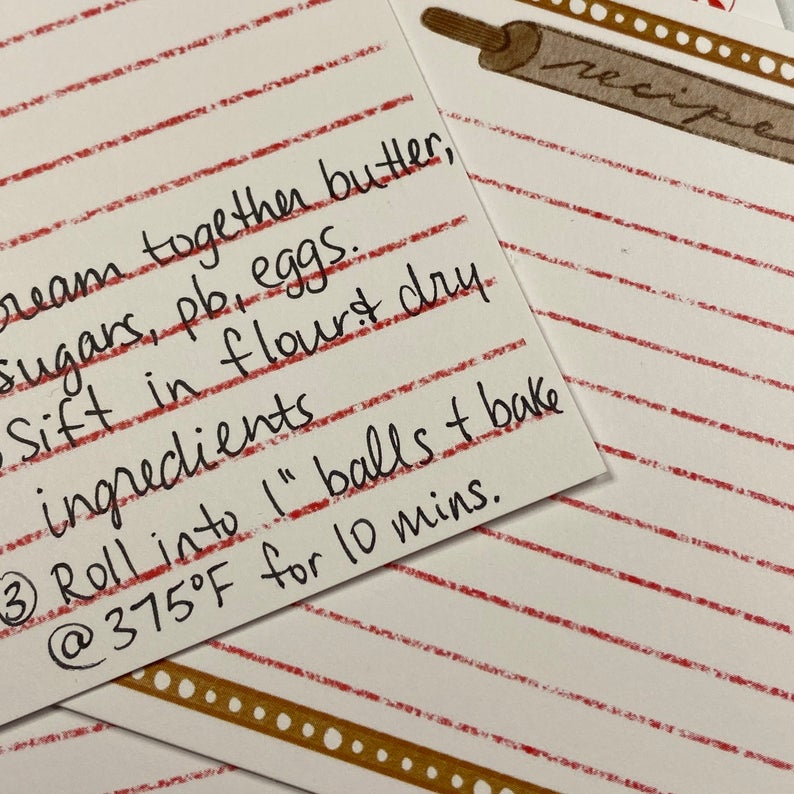 recipe
cream together butter,
sugars, pb, eggs.
Sift in flour & dry
ingredients
③ Roll into 1" balls + bake
@ 375°F for 10 mins.